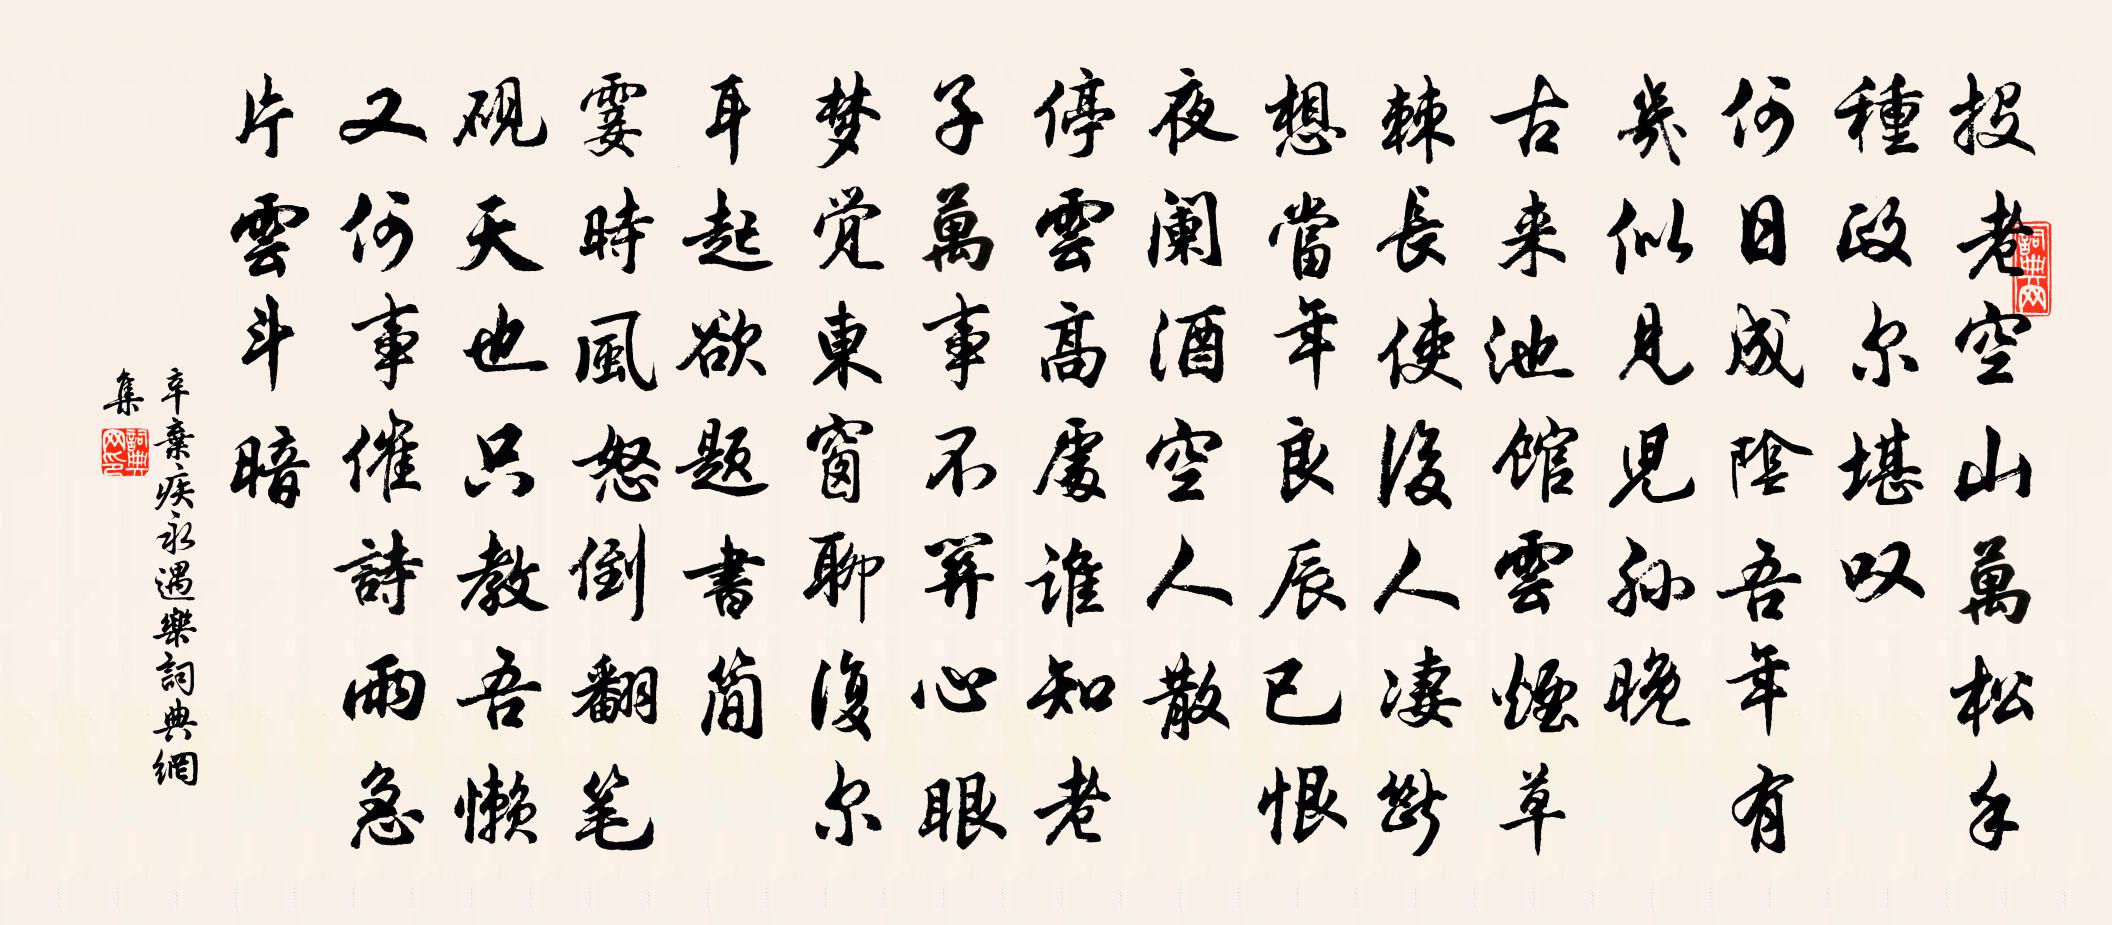 投老空山萬松手
種政尔堪叹
何日成陰吾年有
幾似見兒孙晚
古来池館雲煙草
棘長使後人凄斷
想當年良辰已恨
夜阑酒空人散
停雲高處誰知老
子萬事不關心眼
梦觉東窗聊復尔
耳起欲题書简
霎時風怒倒翻笔
硯天也只教吾懒
又何事催詩雨急
片雲斗暗
辛棄疾永遇樂詞典網
集
詞典網
詞典網印